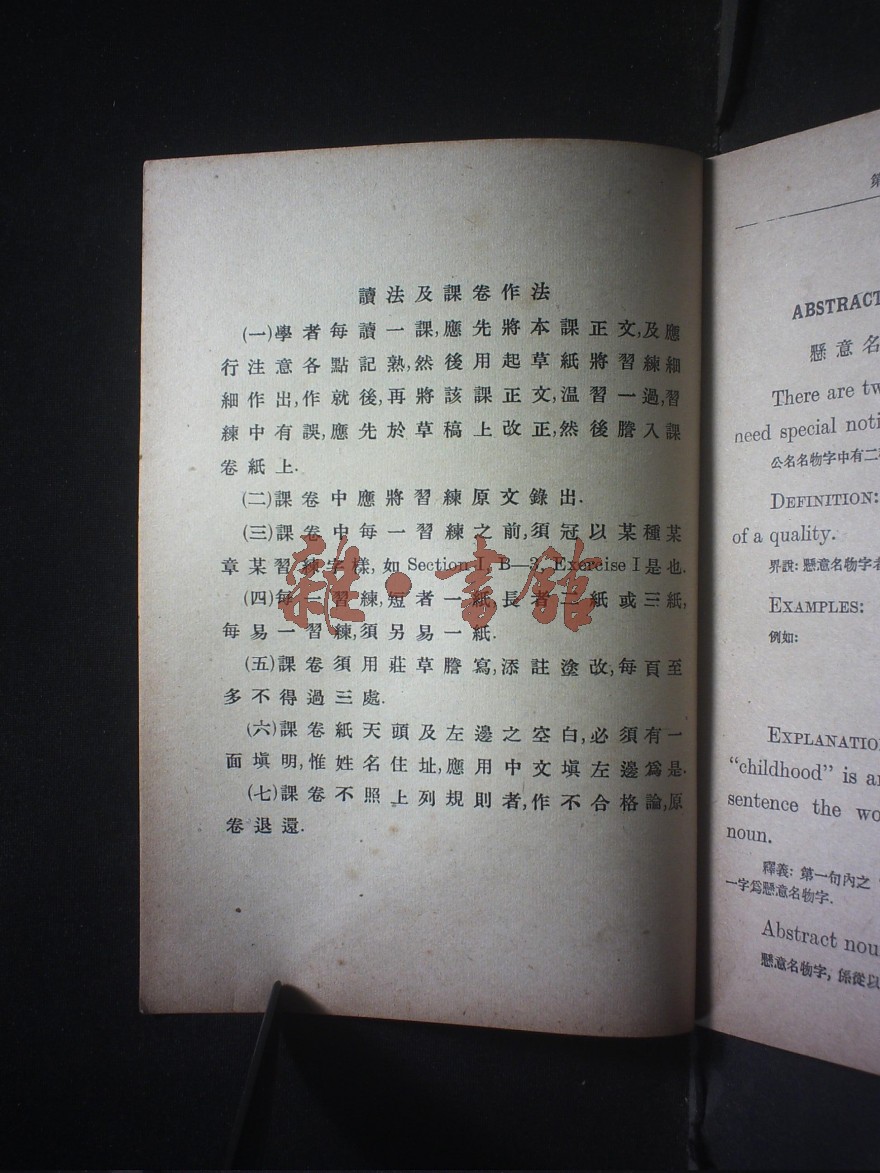 讀法及課卷作法
(一)學者每讀一課,應先將本課正文,及應
行注意各點記熟,然後用起草紙將習練細
細作出,作就後,再將該課正文,温習一過,習
練中有誤,應先於草稿上改正,然後謄入課
卷紙上.
(二)課卷中應將習練原文錄出.
(三)課卷中每一習練之前,須冠以某種某
章某習練字樣,如 Section I, B—3, Exercise I 是也.
(四)每一習練,短者一紙,長者二紙或三紙,
每易一習練,須另易一紙.
(五)課卷須用莊草謄寫,添註塗改,每頁至
多不得過三處.
(六)課卷紙天頭及左邊之空白,必須有一
面塡明,惟姓名住址,應用中文塡左邊爲是.
(七)課卷不照上列規則者,作不合格論,原
卷退還.
雜·書館
第
ABSTRACT
懸意名
There are
need special
公名名物字中有二
DEFINITION:
of a quality.
界說: 懸意名物字
EXAMPLES:
例如:
EXPLANATIO
“childhood” is
sentence the
noun.
釋義: 第一句內之
一字爲懸意名物字.
Abstract nou
懸意名物字, 係從以